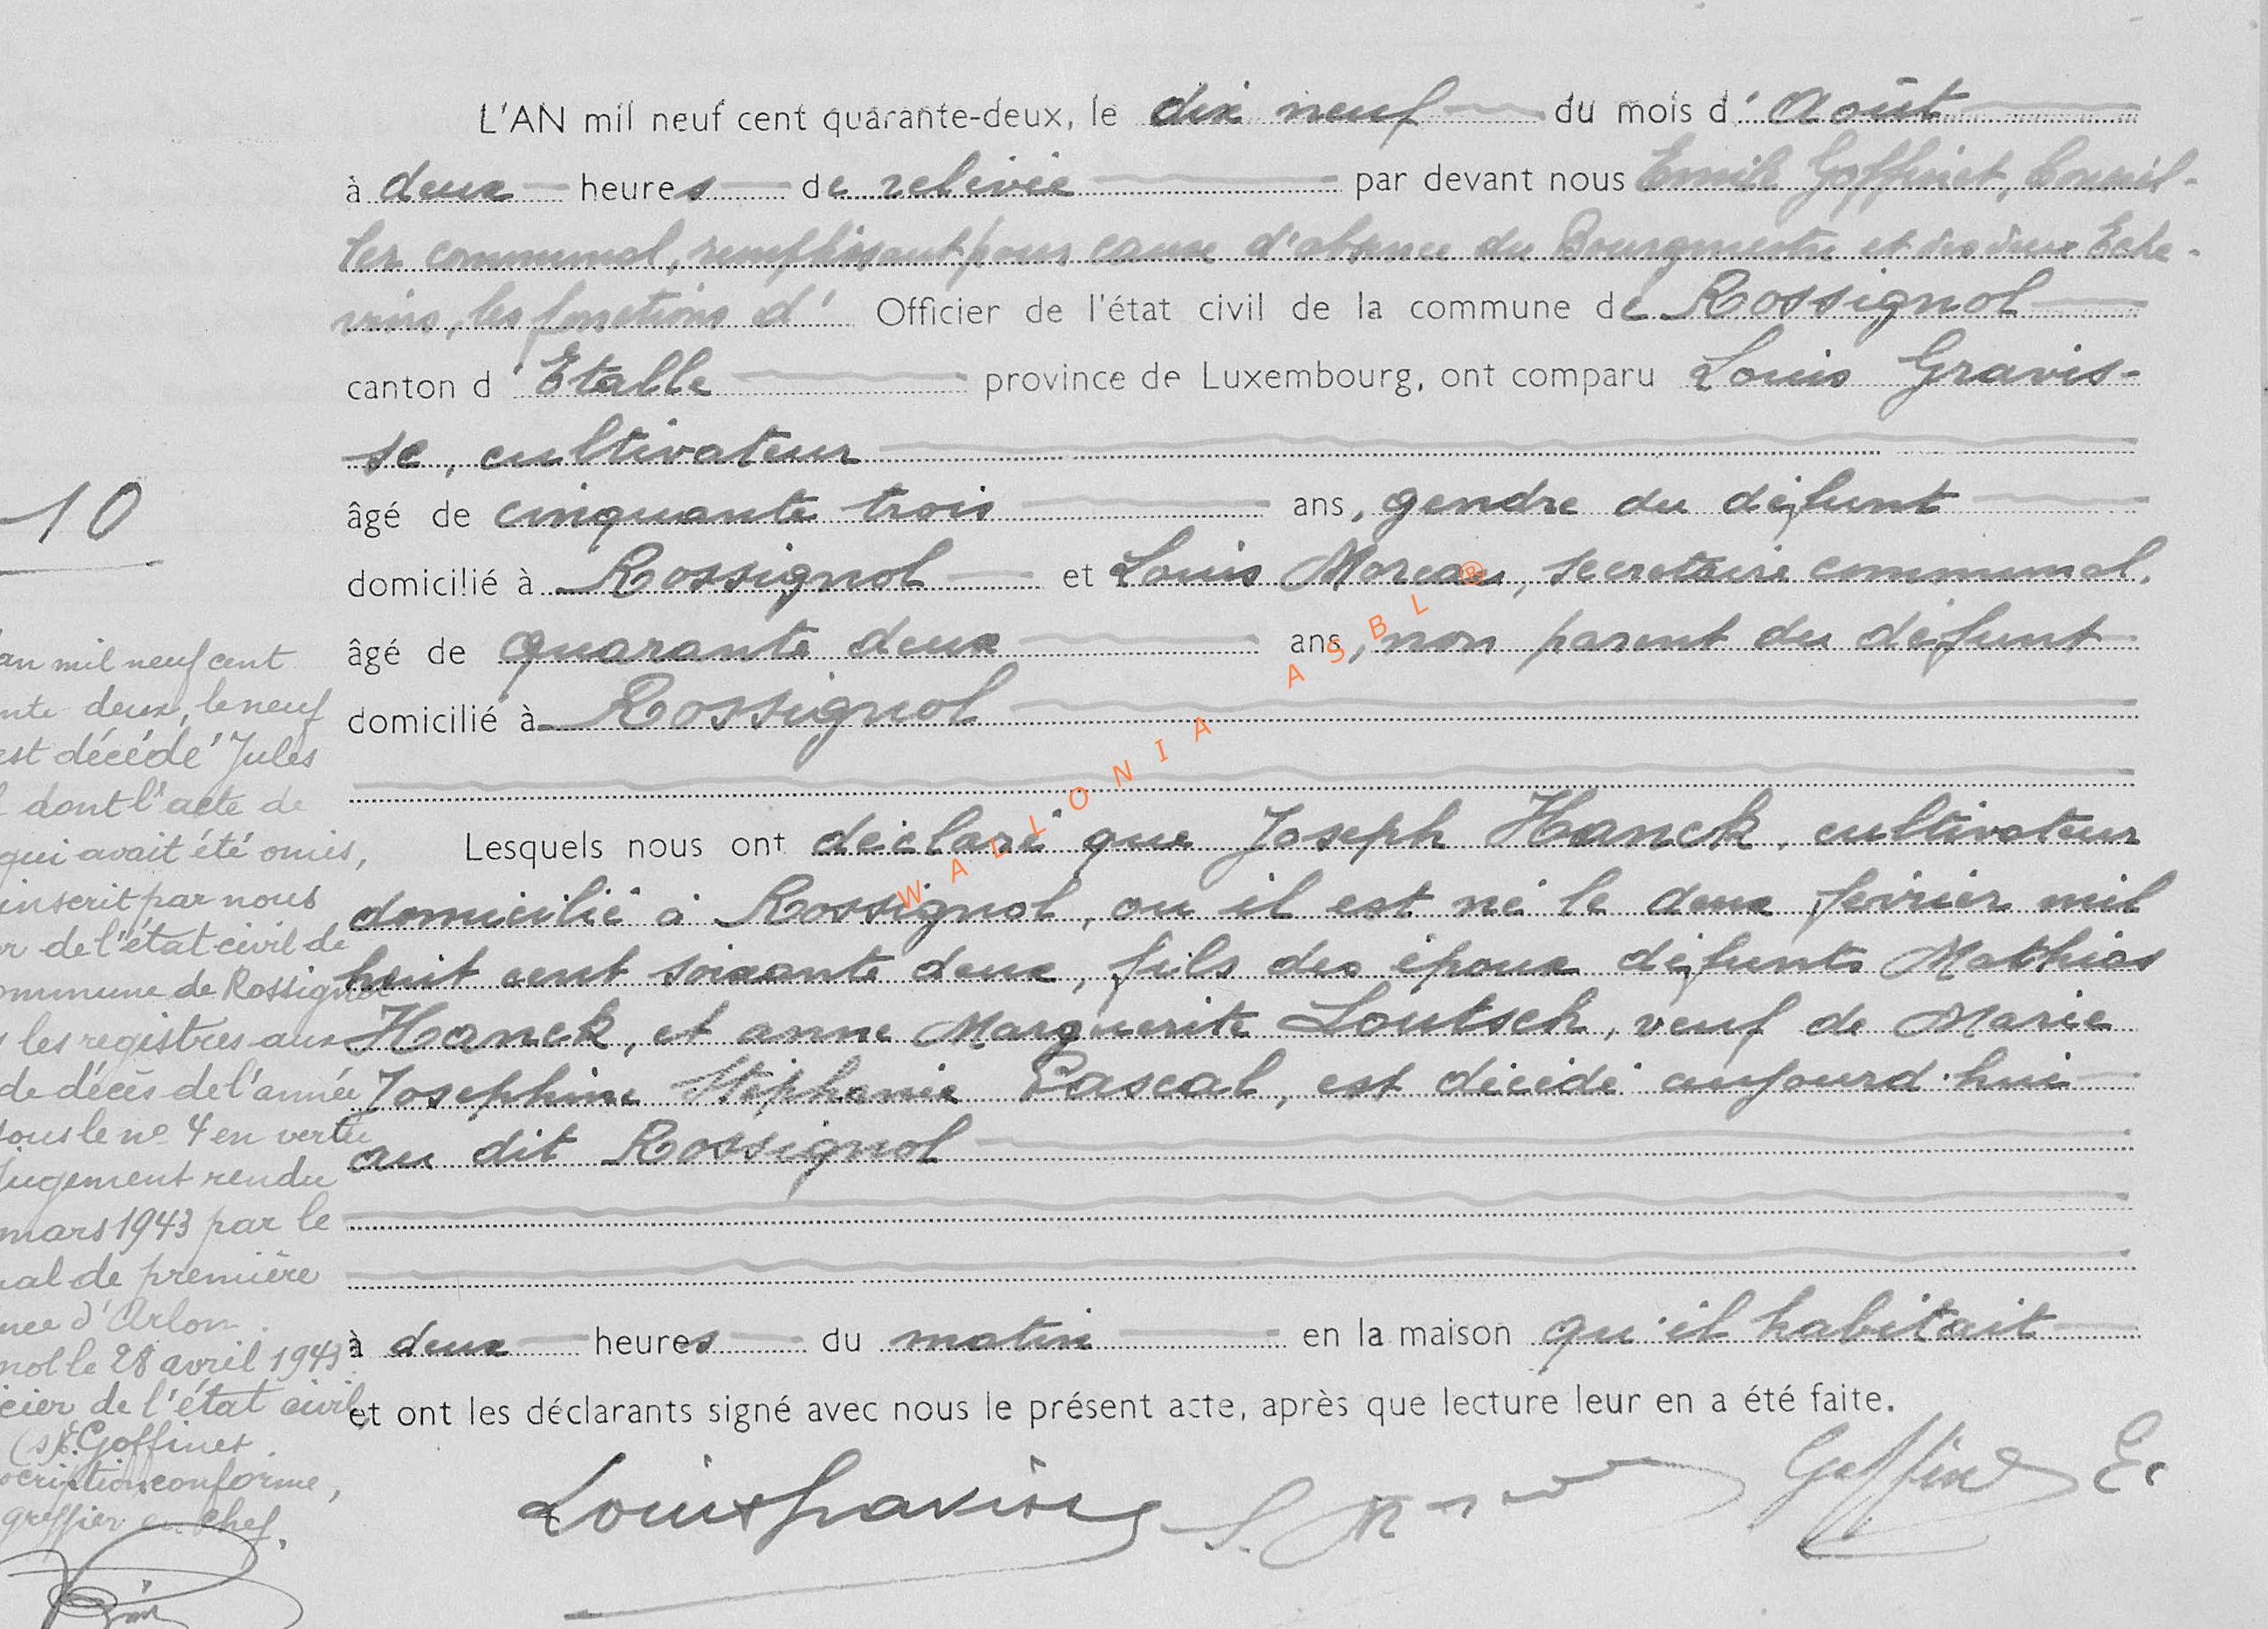 L'AN mil neuf cent quarante-deux, le dix neuf du mois d' Août
à deux heures de relevée par devant nous Emile Goffinet, Conseil-
ler communal, remplissant pour cause d'absence du Bourgmestre et des deux Eche-
vins, les fonctions d' Officier de l'état civil de la commune de Rossignol
canton d' Etalle province de Luxembourg, ont comparu Louis Gravis-
se, cultivateur
âgé de cinquante trois ans, gendre du défunt
domicilié à Rossignol et Louis Moreau, secrétaire communal,
âgé de quarante deux ans, non parent du défunt
domicilié à Rossignol
Lesquels nous ont déclaré que Joseph Hanck, cultivateur
domicilié à Rossignol, ou il est né le deux février mil
huit cent soixante deux, fils des époux défunts Mathias
Hanck, et anne Marguerite Loutsch, veuf de Marie
Josephine Stéphanie Pascal, est décédé aujourd'hui
au dit Rossignol
à deux heures du matin en la maison qu'il habitait
et ont les déclarants signé avec nous le présent acte, après que lecture leur en a été faite.
Louis Gravisse
Goffinet E.
10
an mil neuf cent
nte deux, le neuf
est décédé Jules
l dont l'acte de
qui avait été omis,
inscrit par nous
er de l'état civil de
ommune de Rossignol
s les registres aux
de décès de l'année
sous le n° 4 en vertu
jugement rendu
mars 1943 par le
nal de première
nce d'Arlon.
nol le 28 avril 1943.
cier de l'état civil,
(s) E. Goffinet.
scription conforme,
greffier en chef.
WALLONIA ASBL ®